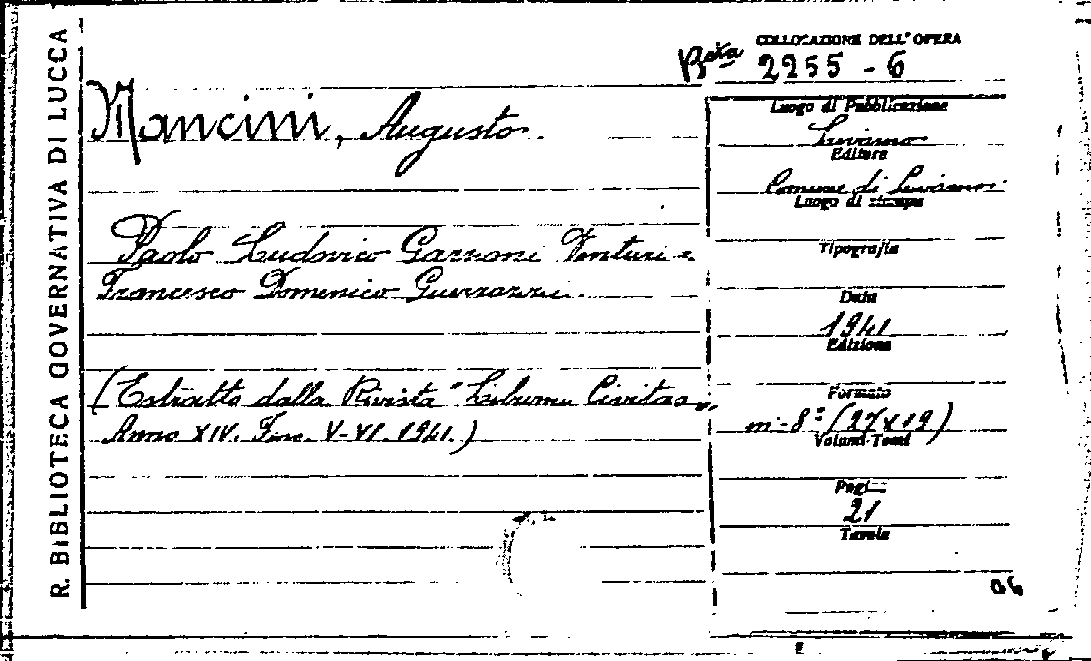 R. BIBLIOTECA GOVERNATIVA DI LUCCA
COLLOCAZIONE DELL'OPERA
Beta 2255 - 6
Mancini, Augusto.
Paolo Ludovico Garzoni Venturi e
Francesco Domenico Guerrazzi.
(Estratto dalla Rivista "Liburni Civitas"
Anno XIV. Fasc. V-VI. 1941.)
Luogo di Pubblicazione
Livorno
Editore
Comune di Livorno.
Luogo di stampa
Tipografia
Data
1941
Edizione
Formato
in-8° (27x19)
Volumi-Tomi
Pagi
21
Tavole